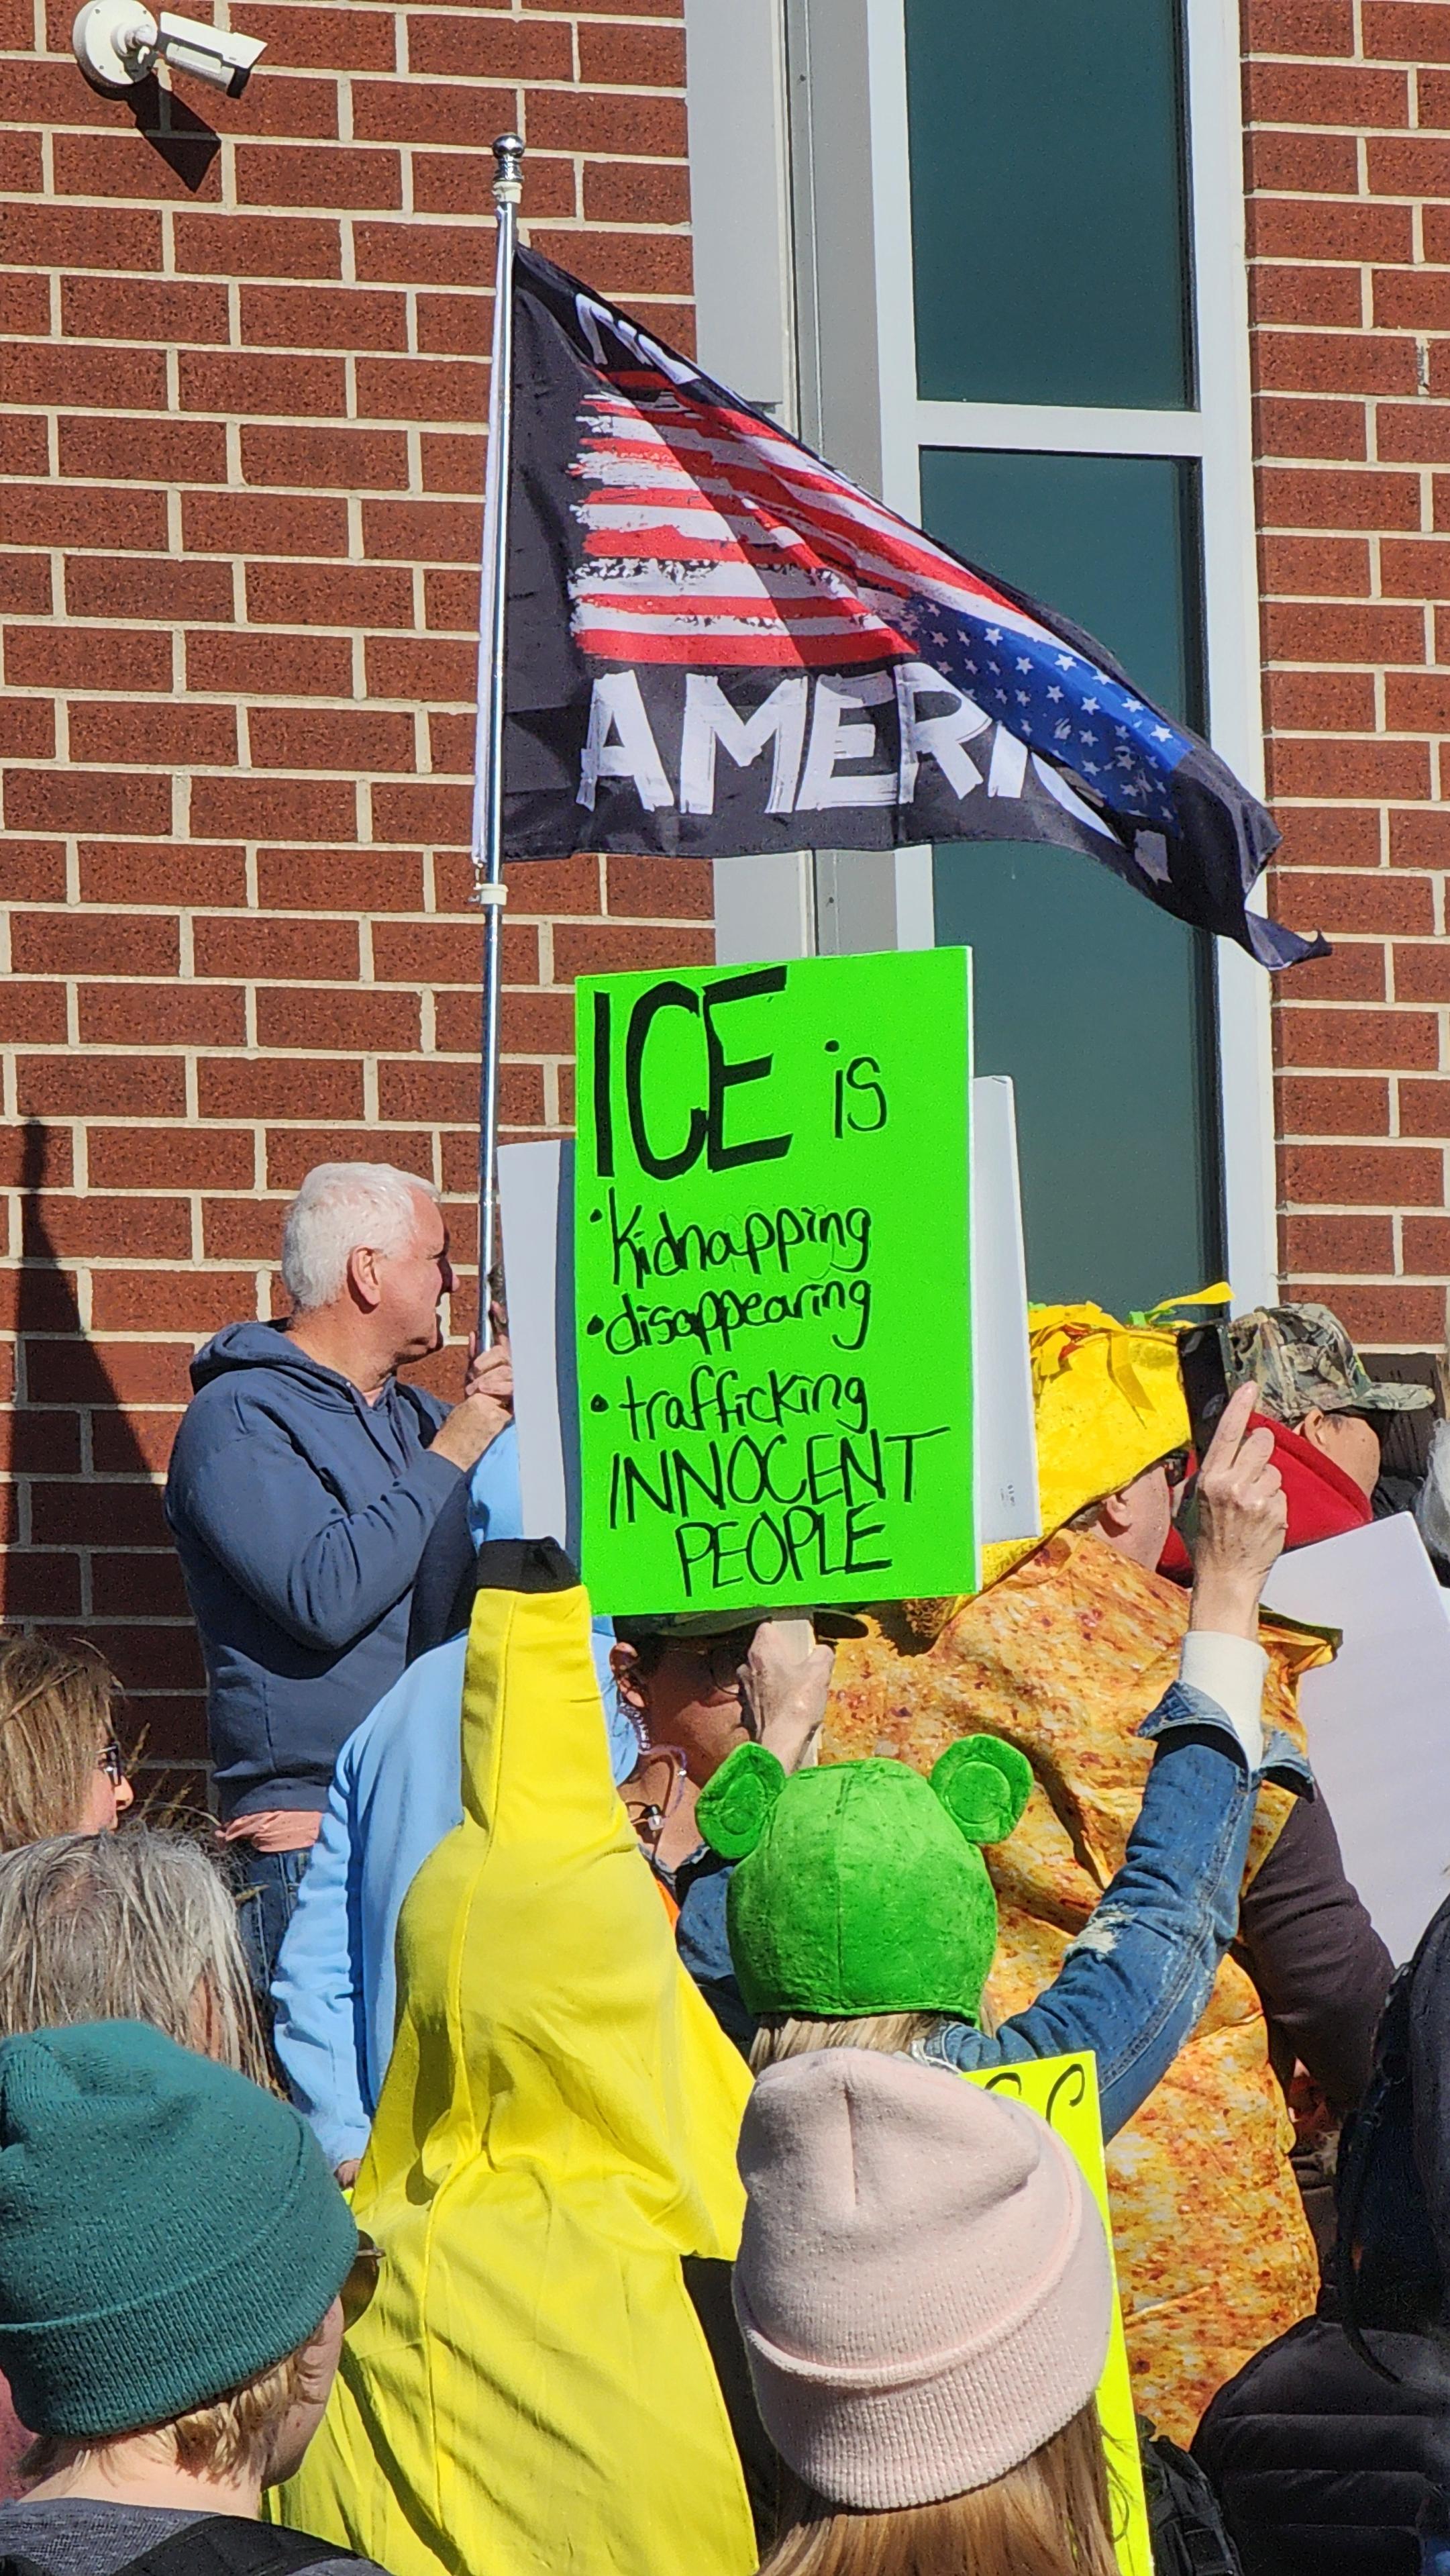 AMERIC
ICE is
• kidnapping
• disappearing
• trafficking
INNOCENT
PEOPLE